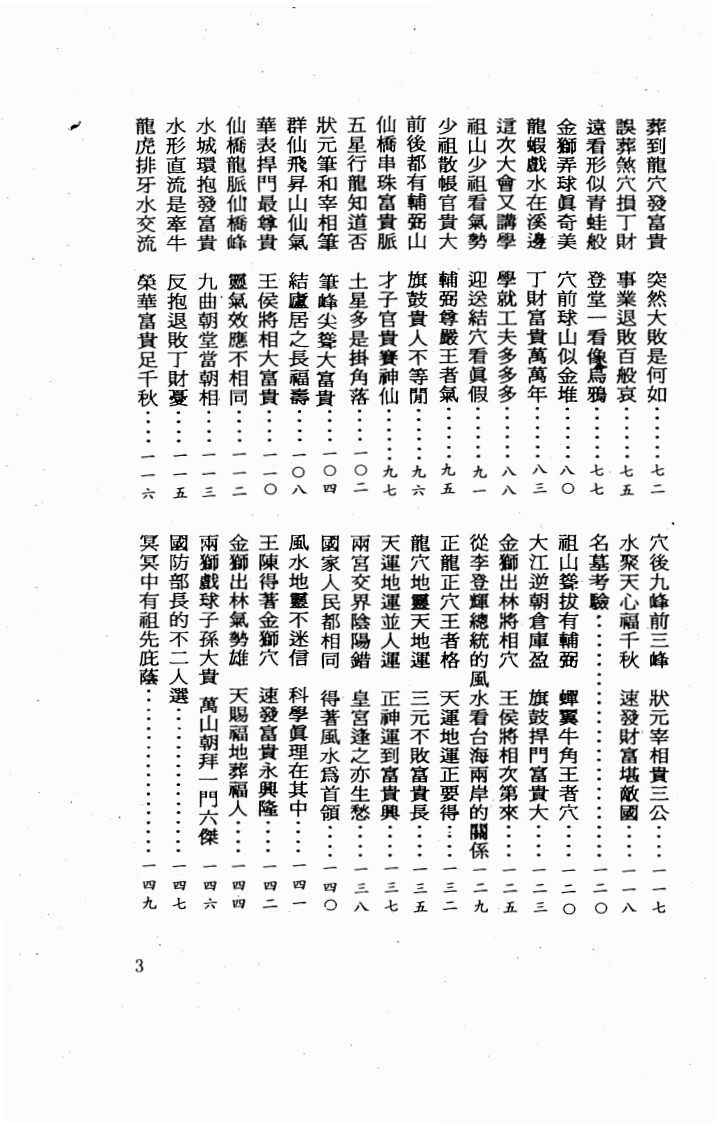 葬到龍穴發富貴　突然大敗是何如……七二
誤葬煞穴損丁財　事業退敗百般哀……七五
遠看形似青蛙般　登堂一看像烏鴉……七七
金獅弄球眞奇美　穴前球山似金堆……八〇
龍蝦戲水在溪邊　丁財富貴萬萬年……八三
這次大會又講學　學就工夫多多多……八八
祖山少祖看氣勢　迎送結穴看眞假……九一
少祖散帳官貴大　輔弼尊嚴王者氣……九五
前後都有輔弼山　旗鼓貴人不等閒……九六
仙橋串珠富貴脈　才子官貴賽神仙……九七
五星行龍知道否　土星多是掛角落……一〇二
狀元筆和宰相筆　筆峰尖聳大富貴……一〇四
群仙飛昇山仙氣　結廬居之長福壽……一〇八
華表捍門最尊貴　王侯將相大富貴……一一〇
仙橋龍脈仙橋峰　靈氣效應不相同……一一二
水城環抱發富貴　九曲朝堂當朝相……一一三
水形直流是牽牛　反抱退敗丁財憂……一一五
龍虎排牙水交流　榮華富貴足千秋……一一六
穴後九峰前三峰　狀元宰相貴三公……一一七
水聚天心福千秋　速發財富堪敵國……一一八
名墓考驗……………………一二〇
祖山聳拔有輔弼　蟬翼牛角王者穴……一二〇
大江逆朝倉庫盈　旗鼓捍門富貴大……一二三
金獅出林將相穴　王侯將相次第來……一二五
從李登輝總統的風水看台海兩岸的關係　一二九
正龍正穴王者格　天運地運正要得……一三二
龍穴地靈天地運　三元不敗富貴長……一三五
天運地運並人運　正神運到富貴興……一三七
兩宮交界陰陽錯　皇宮逢之亦生愁……一三八
國家人民都相同　得著風水爲首領……一四〇
風水地靈不迷信　科學眞理在其中……一四一
王陳得著金獅穴　速發富貴永興隆……一四二
金獅出林氣勢雄　天賜福地葬福人……一四四
兩獅戲球子孫大貴　萬山朝拜一門六傑　一四六
國防部長的不二人選………………一四七
冥冥中有祖先庇蔭………………一四九
3